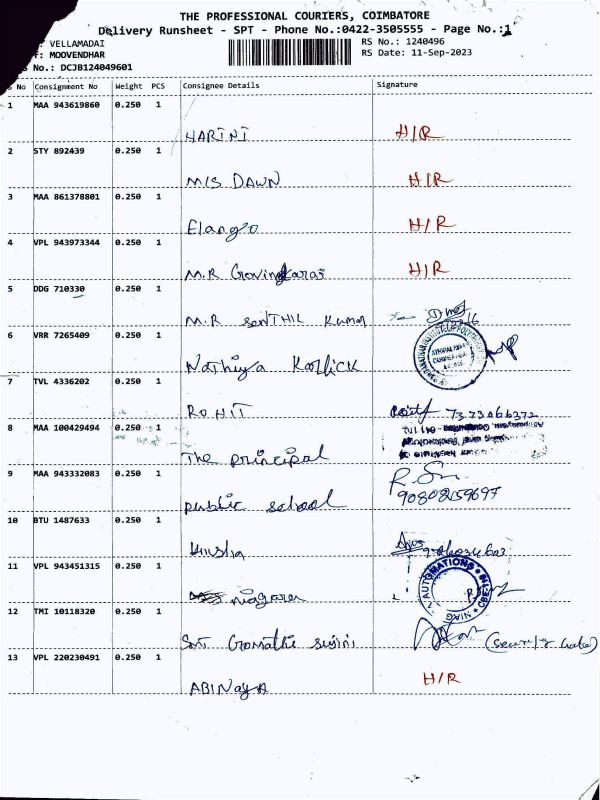 THE PROFESSIONAL COURIERS, COIMBATORE
Delivery Runsheet - SPT - Phone No.:0422-3505555 - Page No.:1
: VELLAMADAI
RS No.: 1240496
: MOOVENDHAR
RS Date: 11-Sep-2023
No.: DCJB124049601
No Consignment No Weight PCS Consignee Details Signature
1 MAA 943619860 0.250 1
HARINI H/R
2 STY 892439 0.250 1
M/S DAWN H/R
3 MAA 861378801 0.250 1
Elango H/R
4 VPL 943973344 0.250 1
M.R Govindaraj H/R
5 DDG 710330 0.250 1
M.R SENTHIL Kumar
6 VRR 7265409 0.250 1
Nathiya Karlick
7 TVL 4336202 0.250 1
ROHIT 7373466372
8 MAA 100429494 0.250 1
The principal
9 MAA 943332083 0.250 1
public school
10 BTU 1487633 0.250 1
11 VPL 943451315 0.250 1
AUTOMATIONS
niagara
12 TMI 10118320 0.250 1
Smt Gomathi (Security Gate)
13 VPL 220230491 0.250 1
ABINAYA H/R